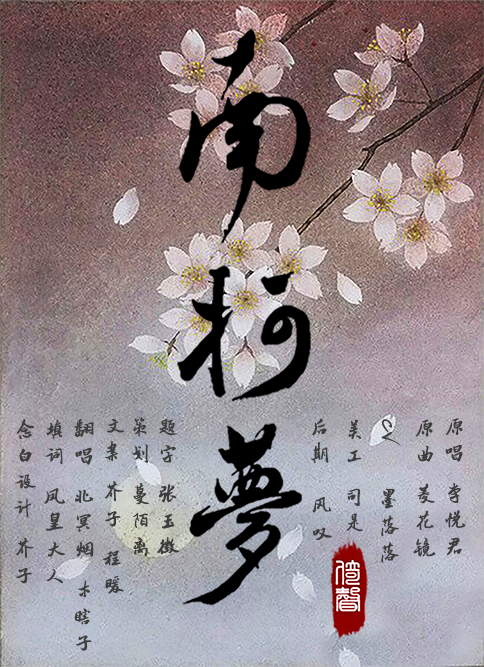 南柯夢
原唱 李悦君
原曲 菱花镜
墨落落
美工 司是
后期 风叹
题字 张玉微
策划 蔓陌离
文案 芥子 程暖
翻唱 北冥烟 木瞎子
填词 凤皇大人
念白设计 芥子